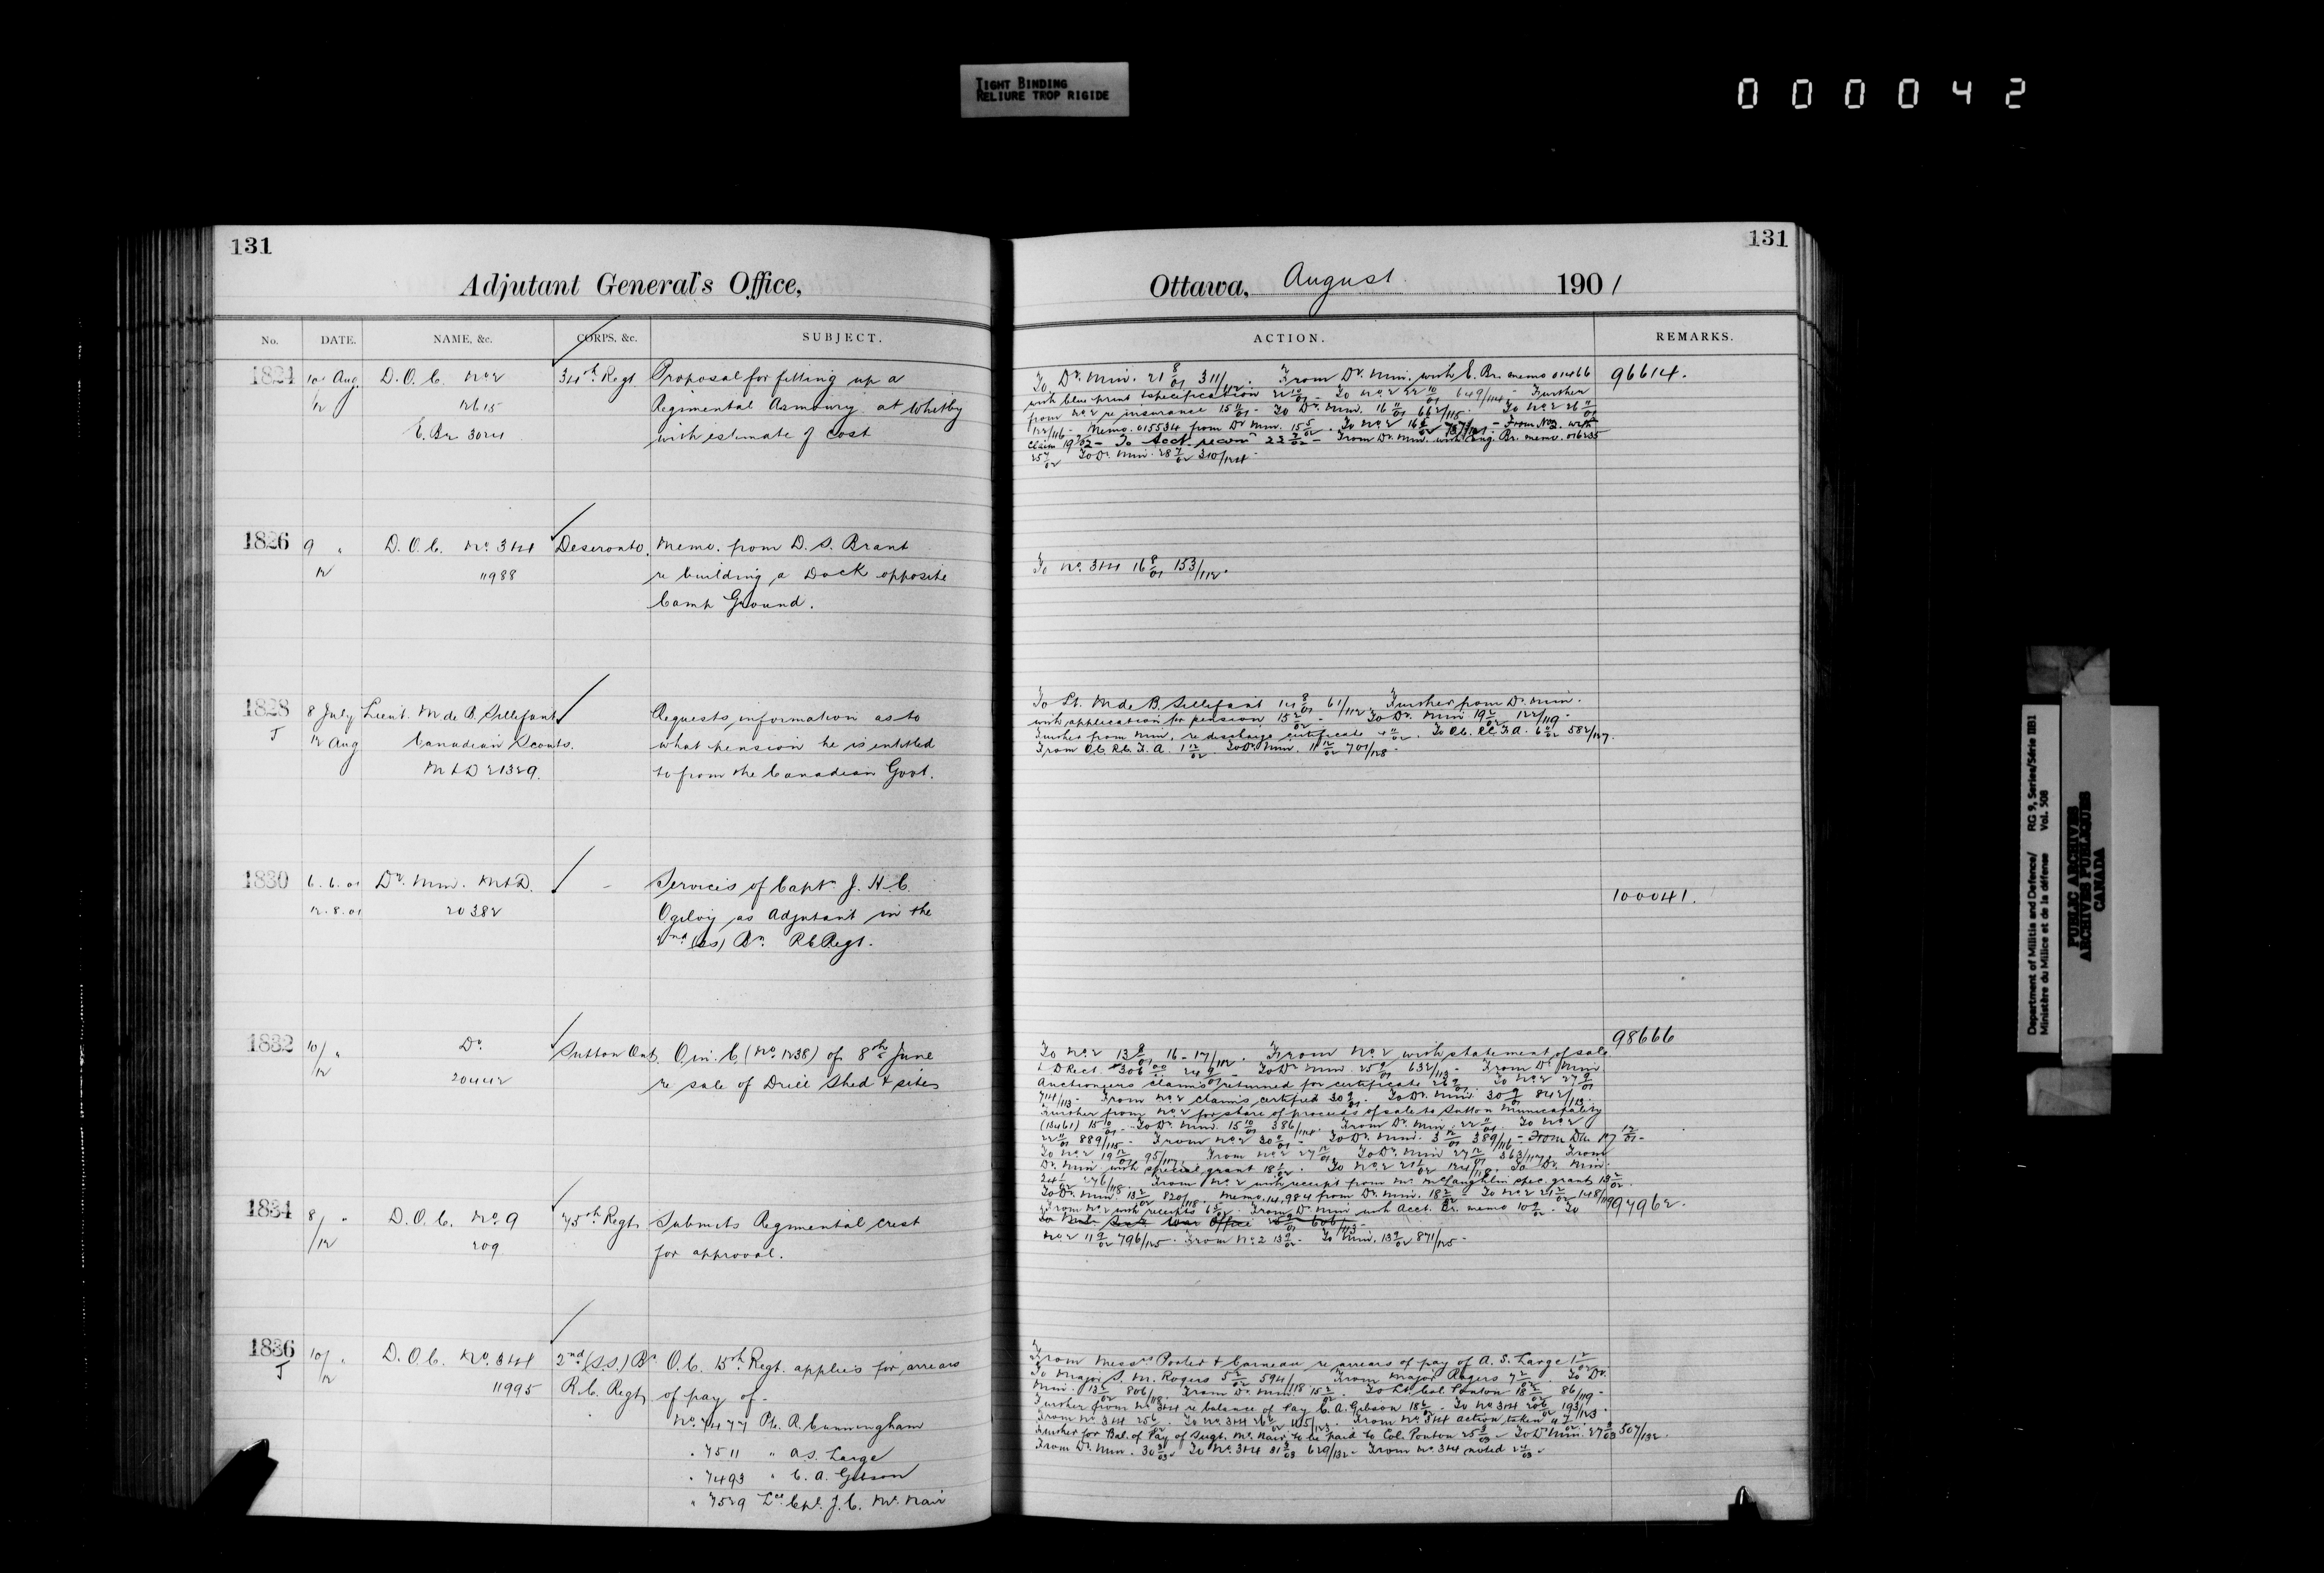 TIGHT BINDING
RELIURE TROP RIGIDE
000042
131
Adjutant General's Office,
No. DATE. NAME, &c. CORPS. &c. SUBJECT.
1824 10 Aug. D.O.C. No 2 34th Regt Proposal for fitting up a
12 12615 Regimental Armoury at Whitby
E. Br 3024 with estimate of cost
1826 9 " D.O.C. No. 3&4 Deseronto. Memo. from D. S. Brant
12 11988 re building a Dock opposite
Camp Ground.
1828 8 July Lieut. M de B. Sillefant Requests information as to
J 12 Aug Canadian Scouts. what pension he is entitled
M&D 21329. to from the Canadian Govt.
1830 6.6.01 Dr. Min. M&D. Services of Capt. J. H. C.
12.8.01 20382 Ogilvy as Adjutant in the
2nd (SS) Bn. R C Regt.
1832 10/12 " Do. Sutton Ont. O. in C. (No. 1238) of 8th June
20442 re sale of Drill Shed & sites
1834 8/12 " D.O.C. No. 9 75th Regt. Submits Regimental Crest
209 for approval.
1836 10/12 " D.O.C. No. 3&4 2nd (S.S.) Bn O.C. 15th Regt. applies for arrears
J 11995 R.C. Regt. of pay of -
No. 7477 Pte. R. Cunningham
" 7511 " A.S. Large
" 7493 " C. A. Gibson
" 7529 Lce Cpl. J. C. McNair
131
Ottawa, August 1901
ACTION. REMARKS.
To Dr. Min. 21 8/01 311/112. From Dr. Min. with E. Br. memo 01466 96614.
with blue print & specification 22 10/01 - To No 2 22 10/01 649/114 - Further
from No 2 re insurance 15 11/01 - To Dr. Min. 16 11/01 662/115. To No 2 26 11/01
122/116 - Memo. 015534 from Dr Min. 15 5/02. To No 2 16 5/02 - From No 2. with
claim 19 - To Acct. - From Dr. Min. with Eng. Br. memo. 016235
25 7/02 To Dr. Min. 28 7/02 310/124 -
To No. 3&4 16 8/01 153/112.
To Lt. M de B. Sillefant 14 8/01 61/112. Further from Dr. Min.
with application for pension 15 2/02 - To Dr. Min 19 2/02 122/119 -
Further from Min, re discharge certificate 4 11/02. To O.C. R.C.F.A. 6 11/02 582/127.
From O.C. R.C.F.A. 1 12/02. To Dr. Min. 11 12/02 701/128.
100041.
98666
To No 2 13 8/01 16-17/112. From No 2 with statement of sale
& D Rect. $306 24 9/01 - To Dr. Min. 25 9/01 632/113 - From Dr Min
Auctioneers claims returned for certificate 26 9/01. To No 2 27 9/01
714/113 - From No 2 claims certified 30 9/01. To Dr. Min. 30 9/01 842/113.
Further from No 2 for share of proceeds of sale to Sutton Municipality
(13461) 15 10/01 - To Dr. Min. 15 10/01 386/114. From Dr. Min. 22 11/01. To No 2
22 11/01 889/115 - From No 2 30 11/01 - To Dr. Min. 3 12/01 389/116 - From Dr. 17 12/01 -
To No 2 19 12/01 95/117. From No 2 27 12/01 To Dr. Min 27 12/01 363/117. From
Dr. Min. with special grant 18 1/02. To No 2 21 1/02 124/118. To Dr. Min.
24 1/02 276/118. From No 2 with receipt from Mr. McLaughlin spec. grant 13 2/02.
To Dr. Min. 13 2/02 820/118. Memo. 14,984 from Dr. Min. 18 2/02 - To No 2 21 2/02 148/119 97962.
From No 2 with receipts. From Dr Min with Acct. Br. memo 10 9/02. To
War Office 606/113
No 2 11 9/02 796/125. From No. 2 13 9/02. To Min. 13 9/02 871/125.
From Messrs Porter & Carnew re arrears of pay of A. S. Large 1 2/02
To Major S. M. Rogers 5 2/02 594/118 From Major Rogers 7 2/02. To Dr.
Min. 13 2/02 806/118. From Dr. Min. 15 2/02. To Lt. Col. Ponton 18 2/02 86/119 -
Further from No. 3&4 re balance of Pay C. A. Gibson 18 6/02 - To No. 3&4 20 6/02 193/123
From No. 3&4 25 6/02. To No. 3&4 26 6/02 405/123. From No. 3&4 action taken.
Further for Bal. of Pay of Sergt. McNair, to be paid to Col. Ponton 25 3/03. To Dr Min. 27 3/03 507/132.
From Dr. Min. 30 3/03. To No. 3&4 31 3/03 629/132 - From No. 3&4 noted 2 4/03.
Department of Militia and Defence/ RG 9, Series/Série IIB1
Ministère du Milice et de la défense Vol. 508
PUBLIC ARCHIVES
ARCHIVES PUBLIQUES
CANADA